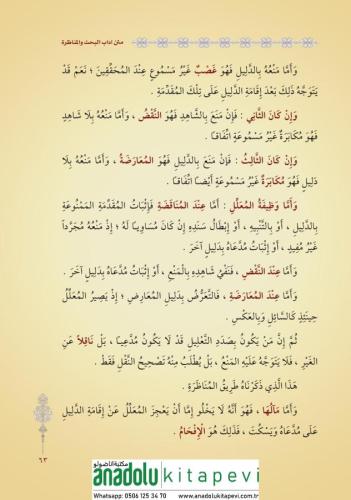 متن آداب البحث والمناظرة
وَأَمَّا مَنْعُهُ بِالدَّلِيلِ فَهُوَ غَصْبٌ غَيْرُ مَسْمُوعٍ عِنْدَ الْمُحَقِّقِينَ ؛ نَعَمْ قَدْ
يَتَوَجَّهُ ذَلِكَ بَعْدَ إِقَامَةِ الدَّلِيلِ عَلَى تِلْكَ الْمُقَدِّمَةِ .
وَإِنْ كَانَ الثَّانِي : فَإِنْ مَنَعَ بِالشَّاهِدِ فَهُوَ النَّقْضُ ، وَأَمَّا مَنْعُهُ بِلَا شَاهِدٍ
فَهُوَ مُكَابَرَةٌ غَيْرُ مَسْمُوعَةٍ اتِّفَاقًا .
وَإِنْ كَانَ الثَّالِثُ : فَإِنْ مَنَعَ بِالدَّلِيلِ فَهُوَ الْمُعَارَضَةُ ، وَأَمَّا مَنْعُهُ بِلَا
دَلِيلٍ فَهُوَ مُكَابَرَةٌ غَيْرُ مَسْمُوعَةٍ أَيْضًا اتِّفَاقًا .
وَأَمَّا وَظِيفَةُ الْمُعَلِّلِ : أَمَّا عِنْدَ الْمُنَاقَضَةِ فَإِثْبَاتُ الْمُقَدِّمَةِ الْمَمْنُوعَةِ
بِالدَّلِيلِ ، أَوْ بِالتَّنْبِيهِ ، أَوْ إِبْطَالُ سَنَدِهِ إِنْ كَانَ مُسَاوِيًا لَهُ ؛ إِذْ مَنْعُهُ مُجَرَّدًا
غَيْرُ مُفِيدٍ ، أَوْ إِثْبَاتُ مُدَّعَاهُ بِدَلِيلٍ آخَرَ .
وَأَمَّا عِنْدَ النَّقْضِ ، فَنَفْيُ شَاهِدِهِ بِالْمَنْعِ ، أَوْ إِثْبَاتُ مُدَّعَاهُ بِدَلِيلٍ آخَرَ .
وَأَمَّا عِنْدَ الْمُعَارَضَةِ ، فَالتَّعَرُّضُ بِدَلِيلِ الْمُعَارِضِ ؛ إِذْ يَصِيرُ الْمُعَلِّلُ
حِينَئِذٍ كَالسَّائِلِ وَبِالْعَكْسِ .
ثُمَّ إِنَّ مَنْ يَكُونُ بِصَدَدِ التَّعْلِيلِ قَدْ لَا يَكُونُ مُدَّعِيًا ، بَلْ نَاقِلًا عَنِ
الْغَيْرِ ، فَلَا يَتَوَجَّهُ عَلَيْهِ الْمَنْعُ ، بَلْ يُطْلَبُ مِنْهُ تَصْحِيحُ النَّقْلِ فَقَطْ .
هَذَا الَّذِي ذَكَرْنَاهُ طَرِيقُ الْمُنَاظَرَةِ .
وَأَمَّا مَآلُهَا ، فَهُوَ أَنَّهُ لَا يَخْلُو إِمَّا أَنْ يَعْجِزَ الْمُعَلِّلُ عَنْ إِقَامَةِ الدَّلِيلِ
عَلَى مُدَّعَاهُ وَيَسْكُتَ ، فَذَلِكَ هُوَ الْإِفْحَامُ .
٦٣
مكتبة اناضولو
anadolu kitapevi
Whatsapp: 0506 125 34 70 www.anadolukitapevi.com.tr